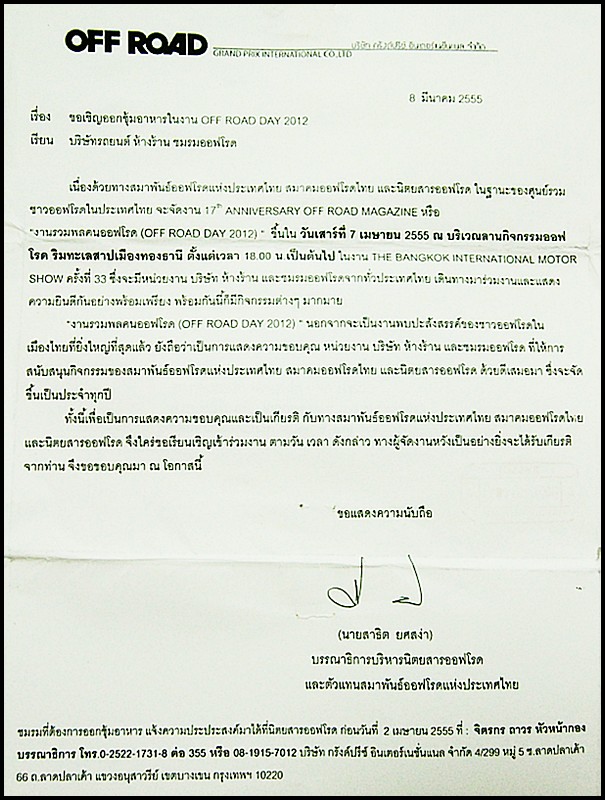 OFF ROAD
GRAND PRIX INTERNATIONAL CO.,LTD บริษัท กรังด์ปรีซ์ อินเตอร์เนชั่นแนล จำกัด
8 มีนาคม 2555
เรื่อง ขอเชิญออกซุ้มอาหารในงาน OFF ROAD DAY 2012
เรียน บริษัทรถยนต์ ห้างร้าน ชมรมออฟโรด
เนื่องด้วยทางสมาพันธ์ออฟโรดแห่งประเทศไทย สมาคมออฟโรดไทย และนิตยสารออฟโรด ในฐานะของศูนย์รวม
ชาวออฟโรดในประเทศไทย จะจัดงาน 17th ANNIVERSARY OFF ROAD MAGAZINE หรือ
"งานรวมพลคนออฟโรด (OFF ROAD DAY 2012) " ขึ้นใน วันเสาร์ที่ 7 เมษายน 2555 ณ บริเวณลานกิจกรรมออฟ
โรด ริมทะเลสาปเมืองทองธานี ตั้งแต่เวลา 18.00 น เป็นต้นไป ในงาน THE BANGKOK INTERNATIONAL MOTOR
SHOW ครั้งที่ 33 ซึ่งจะมีหน่วยงาน บริษัท ห้างร้าน และชมรมออฟโรดจากทั่วประเทศไทย เดินทางมาร่วมงานและแสดง
ความยินดีกันอย่างพร้อมเพรียง พร้อมกันนี้ก็มีกิจกรรมต่างๆ มากมาย
"งานรวมพลคนออฟโรด (OFF ROAD DAY 2012) " นอกจากจะเป็นงานพบปะสังสรรค์ของชาวออฟโรดใน
เมืองไทยที่ยิ่งใหญ่ที่สุดแล้ว ยังถือว่าเป็นการแสดงความขอบคุณ หน่วยงาน บริษัท ห้างร้าน และชมรมออฟโรด ที่ให้การ
สนับสนุนกิจกรรมของสมาพันธ์ออฟโรดแห่งประเทศไทย สมาคมออฟโรดไทย และนิตยสารออฟโรด ด้วยดีเสมอมา ซึ่งจะจัด
ขึ้นเป็นประจำทุกปี
ทั้งนี้เพื่อเป็นการแสดงความขอบคุณและเป็นเกียรติ กับทางสมาพันธ์ออฟโรดแห่งประเทศไทย สมาคมออฟโรดไทย
และนิตยสารออฟโรด จึงใคร่ขอเรียนเชิญเข้าร่วมงาน ตามวัน เวลา ดังกล่าว ทางผู้จัดงานหวังเป็นอย่างยิ่งจะได้รับเกียรติ
จากท่าน จึงขอขอบคุณมา ณ โอกาสนี้
ขอแสดงความนับถือ
(นายสาธิต ยศสง่า)
บรรณาธิการบริหารนิตยสารออฟโรด
และตัวแทนสมาพันธ์ออฟโรดแห่งประเทศไทย
ชมรมที่ต้องการออกซุ้มอาหาร แจ้งความประประสงค์มาได้ที่นิตยสารออฟโรด ก่อนวันที่ 2 เมษายน 2555 ที่ : จิตรกร ถาวร หัวหน้ากอง
บรรณาธิการ โทร.0-2522-1731-8 ต่อ 355 หรือ 08-1915-7012 บริษัท กรังด์ปรีซ์ อินเตอร์เนชั่นแนล จำกัด 4/299 หมู่ 5 ซ.ลาดปลาเค้า
66 ถ.ลาดปลาเค้า แขวงอนุสาวรีย์ เขตบางเขน กรุงเทพฯ 10220